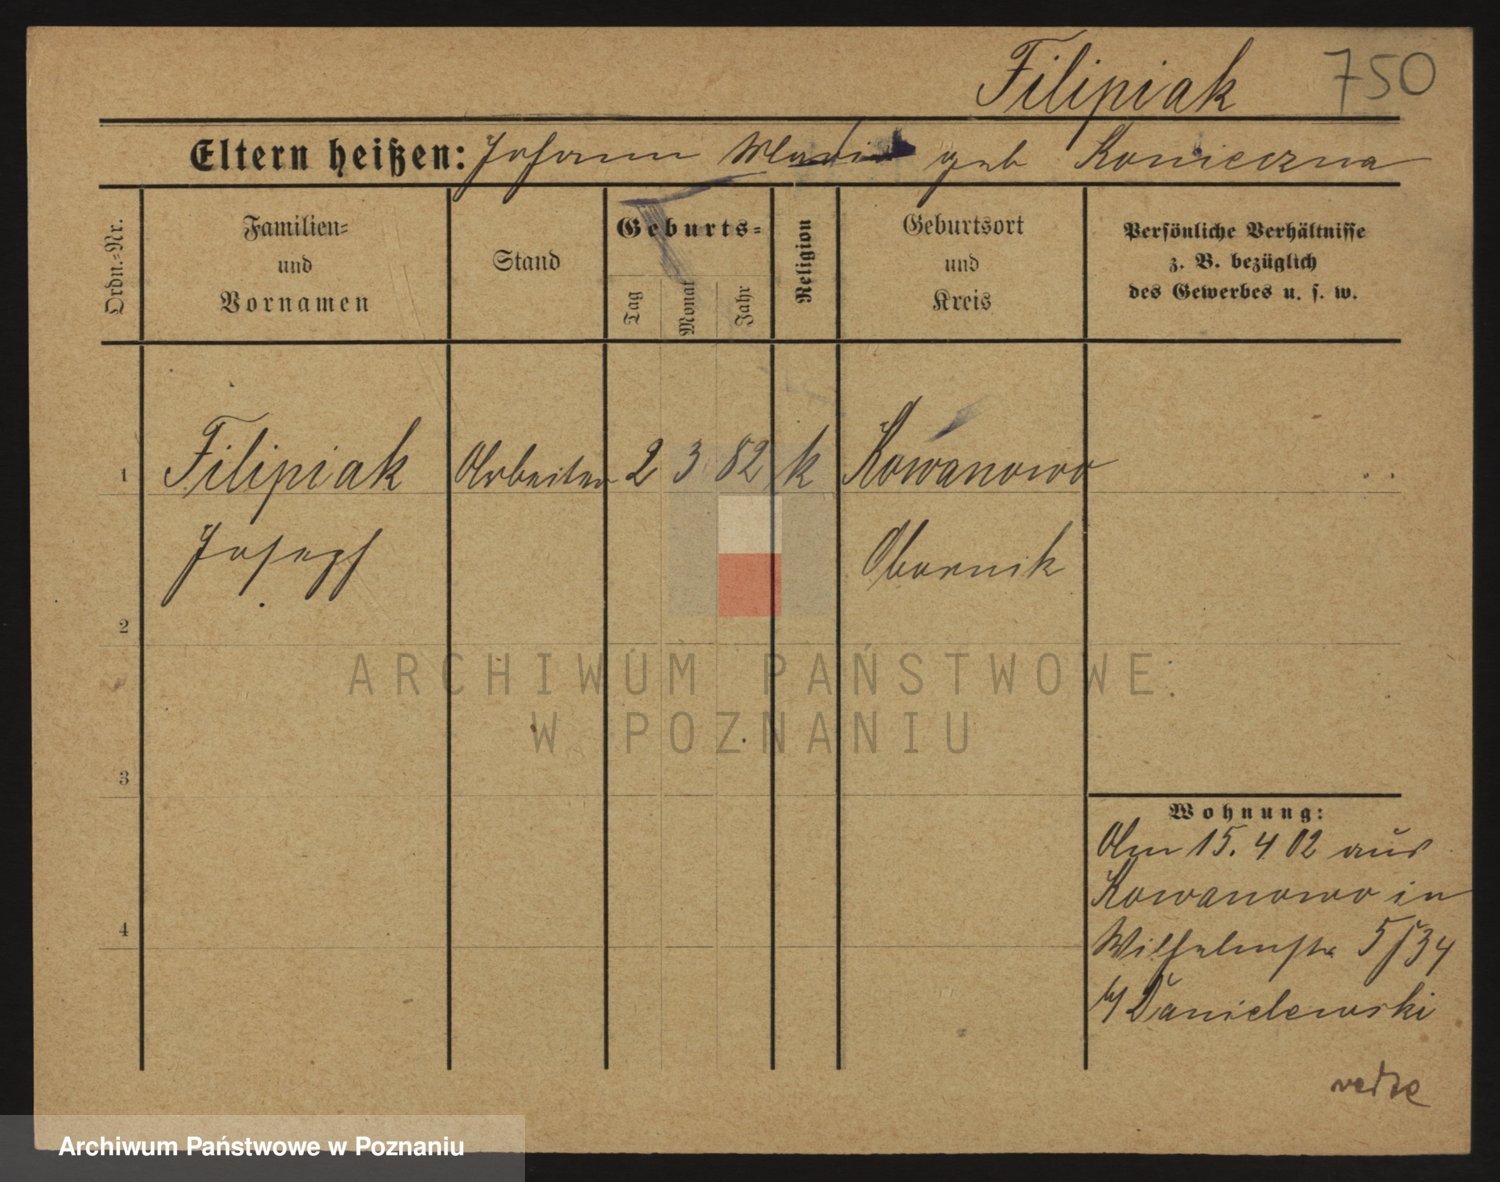 Filipiak 750
Eltern heißen: Johann Maria geb Konieczna
Ordn.-Nr.
Familien-
und
Vornamen
Stand
Geburts-
Tag
Monat
Jahr
Religion
Geburtsort
und
Kreis
Persönliche Verhältnisse
z. B. bezüglich
des Gewerbes u. s. w.
1 Filipiak Arbeiter 2 3 82 k Kowanowo
Joseph Obornik
2
3
4
Wohnung:
Am 15. 4 02 aus
Kowanowo in
Wilhelmstr 5/34
b/ Danielewski
ARCHIWUM PAŃSTWOWE
W POZNANIU
Archiwum Państwowe w Poznaniu